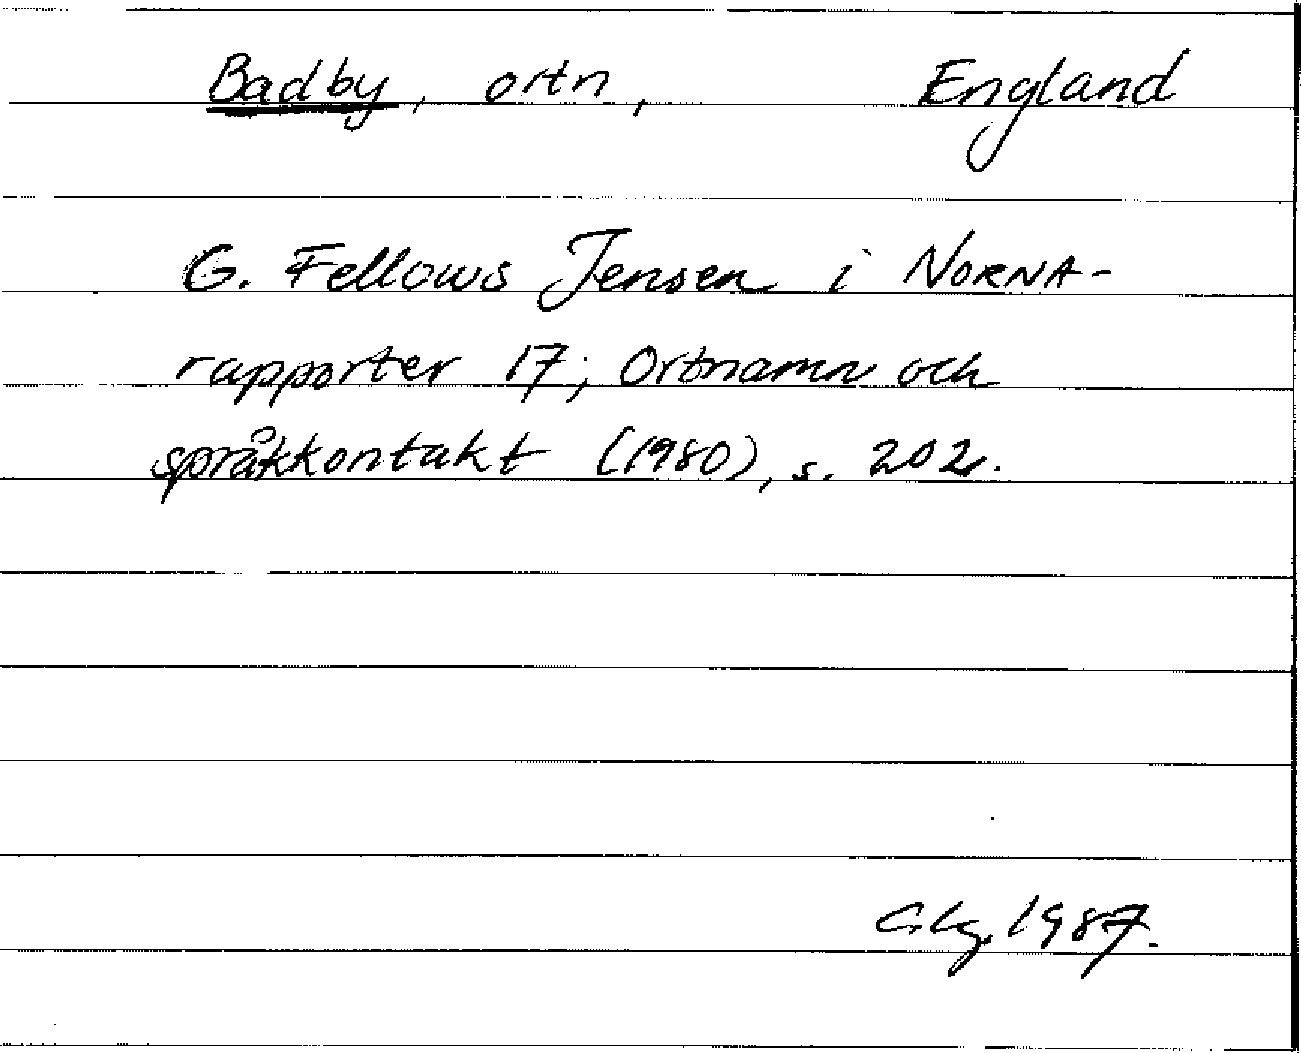 Badby, ortn, England
G. Fellows Jensen i NORNA-
rapporter 17; Ortnamn och
språkkontakt (1980), s. 202.
1987.